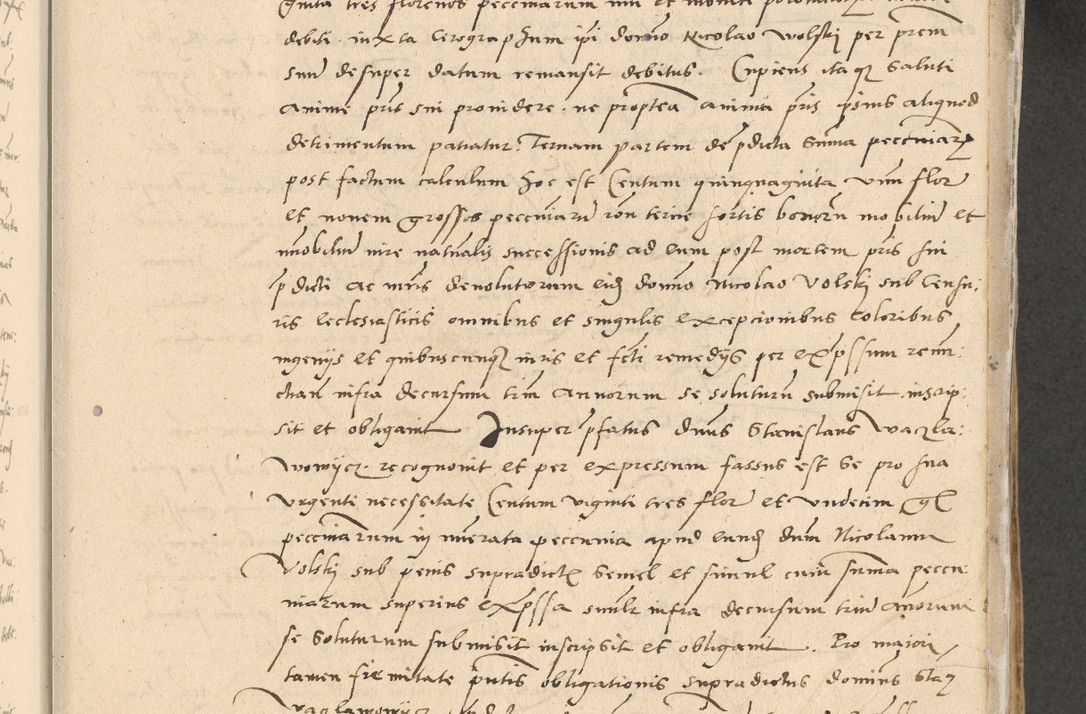 ginta tres florenos peccuniarum
debiti iuxta Cerographum ipi domno Nicolao Wolskj per prem
sun desuper datum remansit debitus. Cupiens itaqz saluti
anime pris sui prouidere. ne proptea anima pris ipsius aliquod
detrimentum patiatur. Ternam partem de pdicta Suma peccuniarz
post factum calculum hoc est Centum quinquaginta vnu flor
et nouem grossos peccuniaru ron terne sortis bonoru mobiliu et
imobiliu iure naturalis successionis ad eum post mortem pris sui
pdicti ac mris deuolutorum eidz domno Nicolao Volskj sub Censu:
ris Ecclesiasticis omnibus et singulis excepcionibus Coloribus
ingenijs et quibuscunqz iuris et fcti remedijs per expssum renu:
ctian infra decursum triu Annorum se soluturu submisit inscrip:
sit et obligauit Insuper pfatus dnus Stanislaus Waczla:
wowijcz. recognouit et per expressum fassus est se pro sua
vrgenti necessitate Centum viginti tres flor et vndecim g
peccuniarum in nuerata peccunia apud eundz dnum Nicolaum
Volskj sub penis supradictis semel et simul cum suma peccu
niarum superius expssa simlr infra decursum triu Anorum
se soluturum submisit inscripsit et obligauit. Pro maiori
tamen firmitate pntis obligationis supradictus dominus Staz
Waclawowijcz